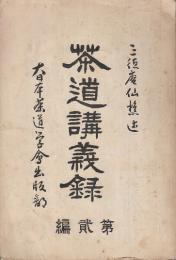 三徳庵仙樵述
茶道講義録
第貳編
大日本茶道学會出版部